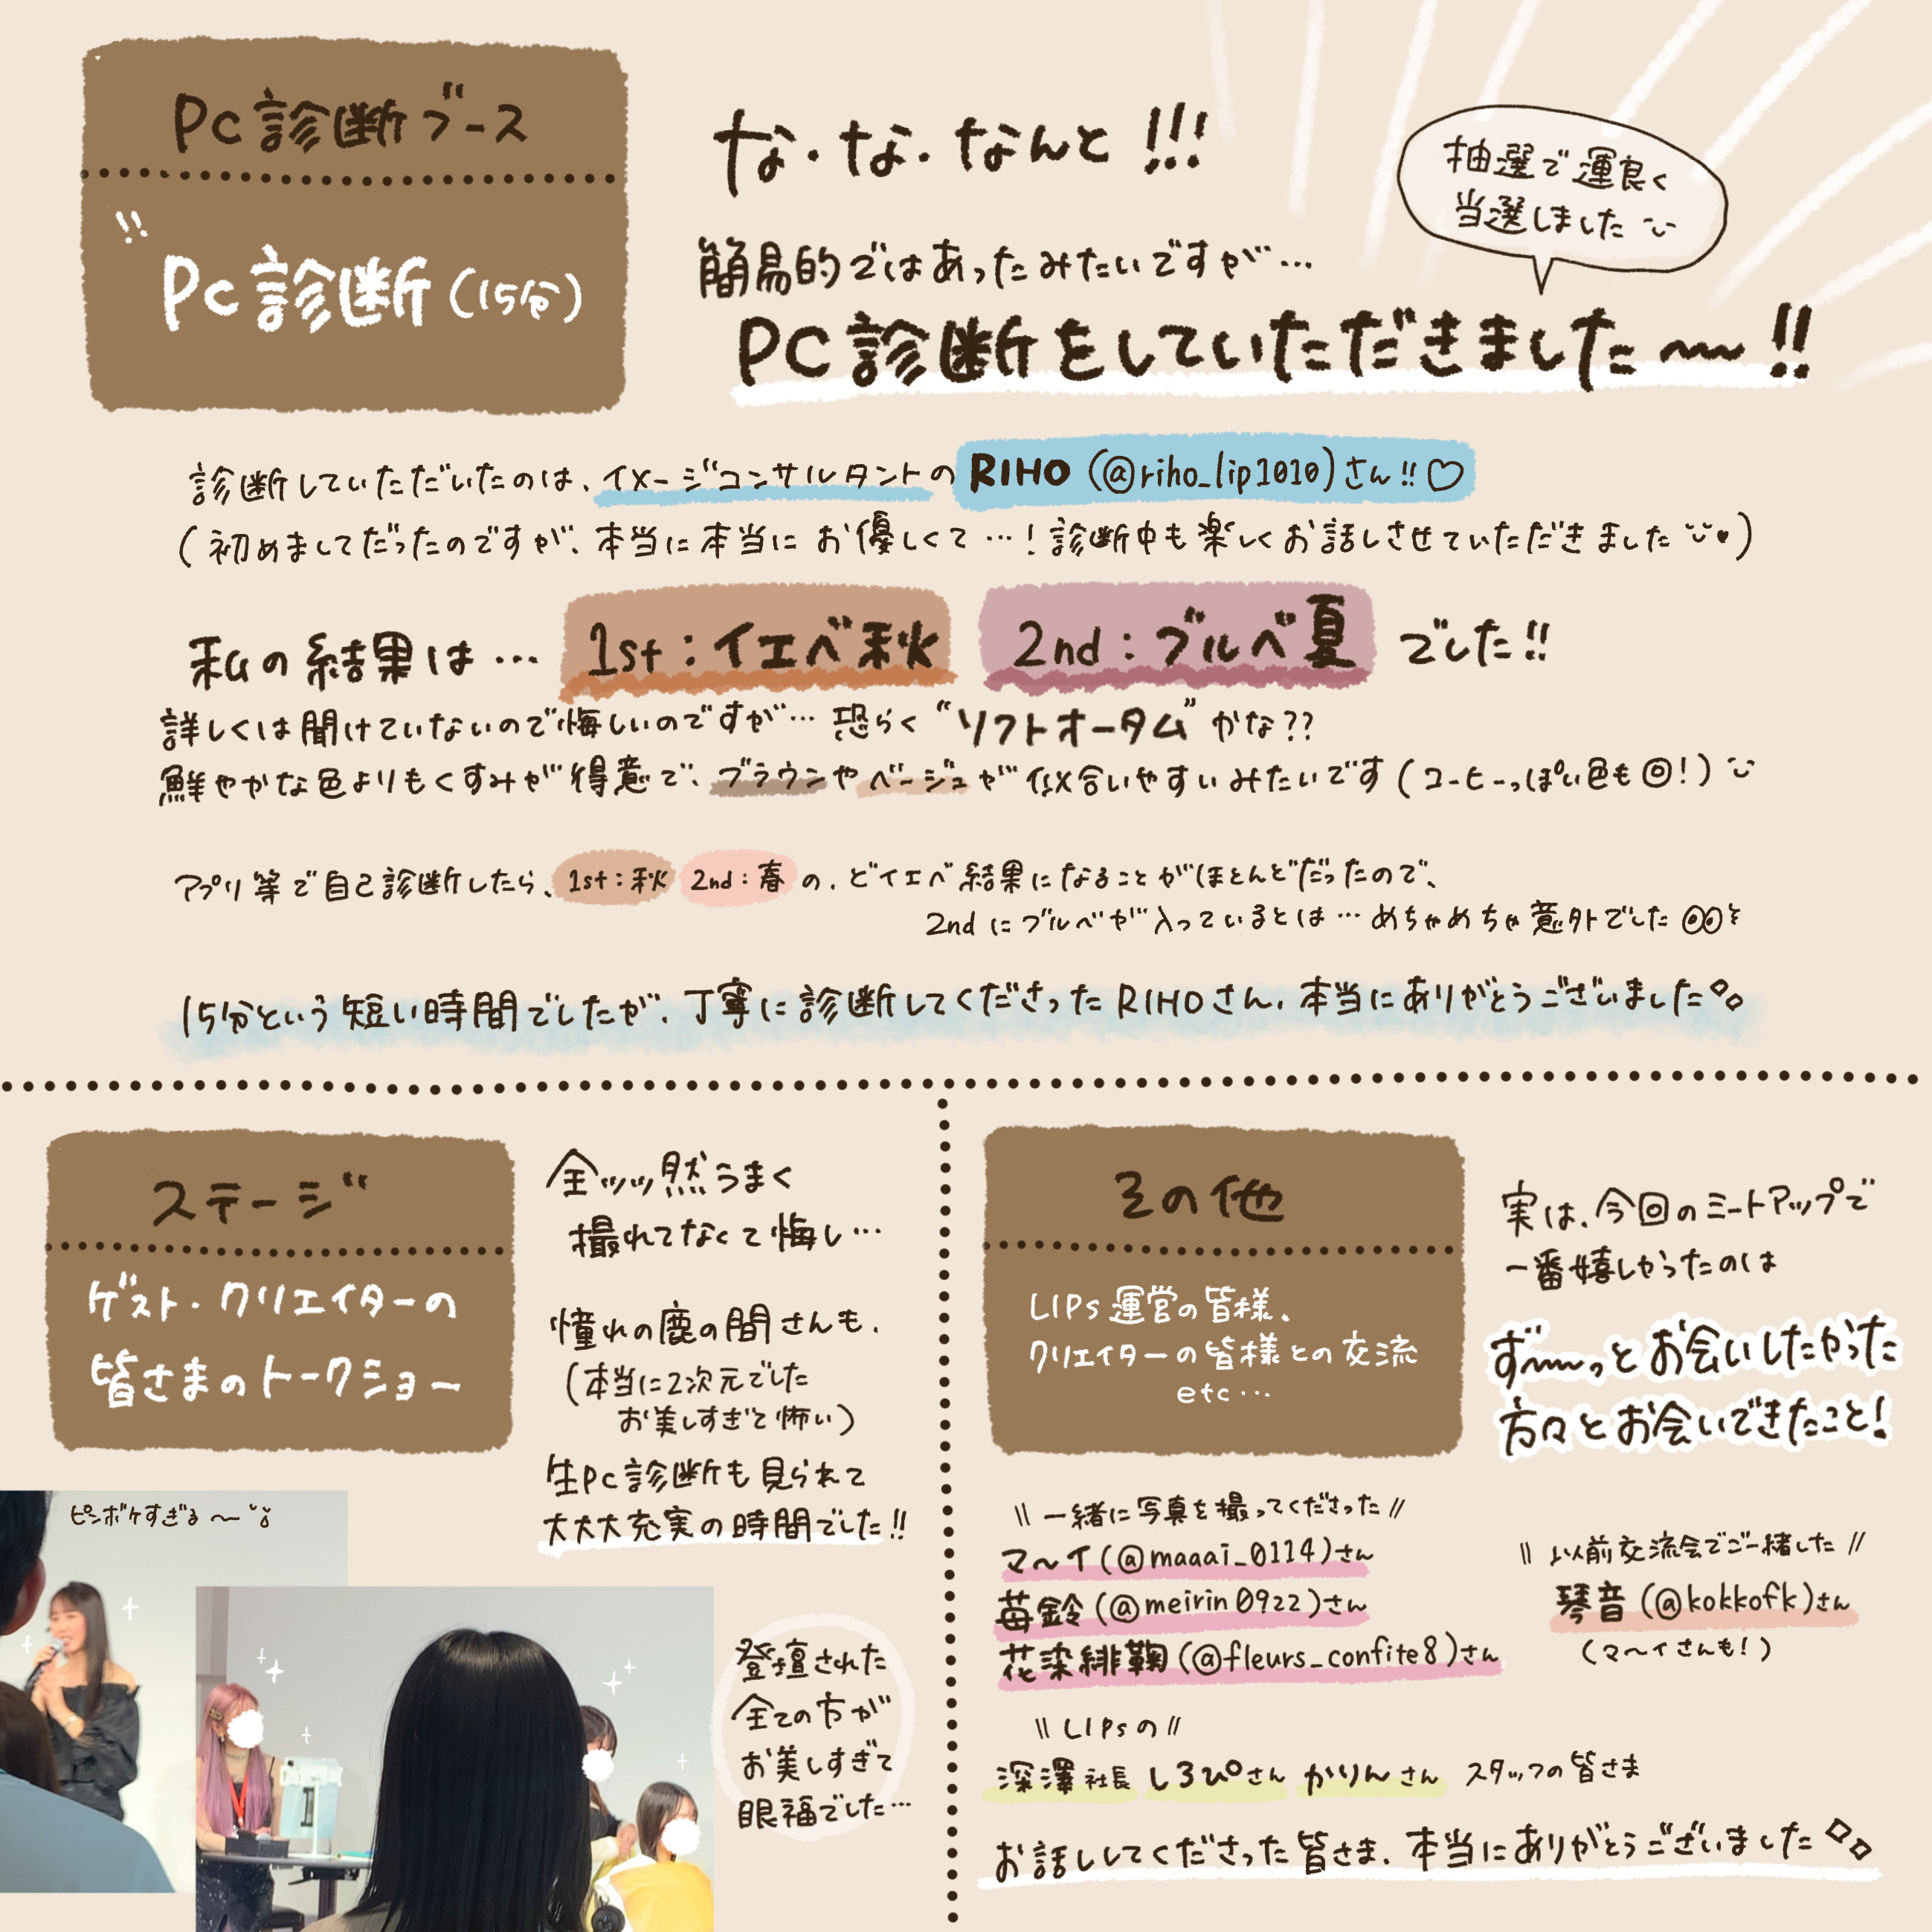 PC診断ブース
PC診断(15分)
な・な・なんと!!!
抽選で運良く
当選しました
簡易的ではあったみたいですが…
PC診断をしていただきました〜!!
診断していただいたのは、イメージコンサルタントの RIHO (@riho_lip1010)さん!!♡
(初めましてだったのですが、本当に本当にお優しくて…!診断中も楽しくお話しさせていただきました♥)
私の結果は… 1st:イエベ秋 2nd:ブルベ夏 でした!!
詳しくは聞けていないので悔しいのですが…恐らく"ソフトオータム"かな??
鮮やかな色よりもくすみが得意で、ブラウンやベージュが似合いやすいみたいです(コーヒーっぽい色も◎!)
アプリ等で自己診断したら、1st:秋 2nd:春 の、どイエベ結果になることがほとんどだったので、
2ndにブルベが入っているとは…めちゃめちゃ意外でした◎◎
15分という短い時間でしたが、丁寧に診断してくださったRIHOさん、本当にありがとうございました
ステージ
ゲスト・クリエイターの
皆さまのトークショー
全ッッ然うまく
撮れてなくて悔し…
憧れの鹿の間さんも、
(本当に2次元でした
お美しすぎて怖い)
生PC診断も見られて
大大大充実の時間でした!!
ピンボケすぎる〜
登壇された
全ての方が
お美しすぎて
眼福でした…
その他
LIPS運営の皆様、
クリエイターの皆様との交流
etc…
実は、今回のミートアップで
一番嬉しかったのは
ず〜〜っとお会いしたかった
方々とお会いできたこと!
\\一緒に写真を撮ってくださった//
マ〜イ(@maaai_0114)さん
苺鈴(@meirin0922)さん
花染緋鞠(@fleurs_confite8)さん
\\以前交流会でご一緒した//
琴音(@kokkofk)さん
(マ〜イさんも!)
\\LIPSの//
深澤社長 しろぴさん かりんさん スタッフの皆さま
お話ししてくださった皆さま、本当にありがとうございました